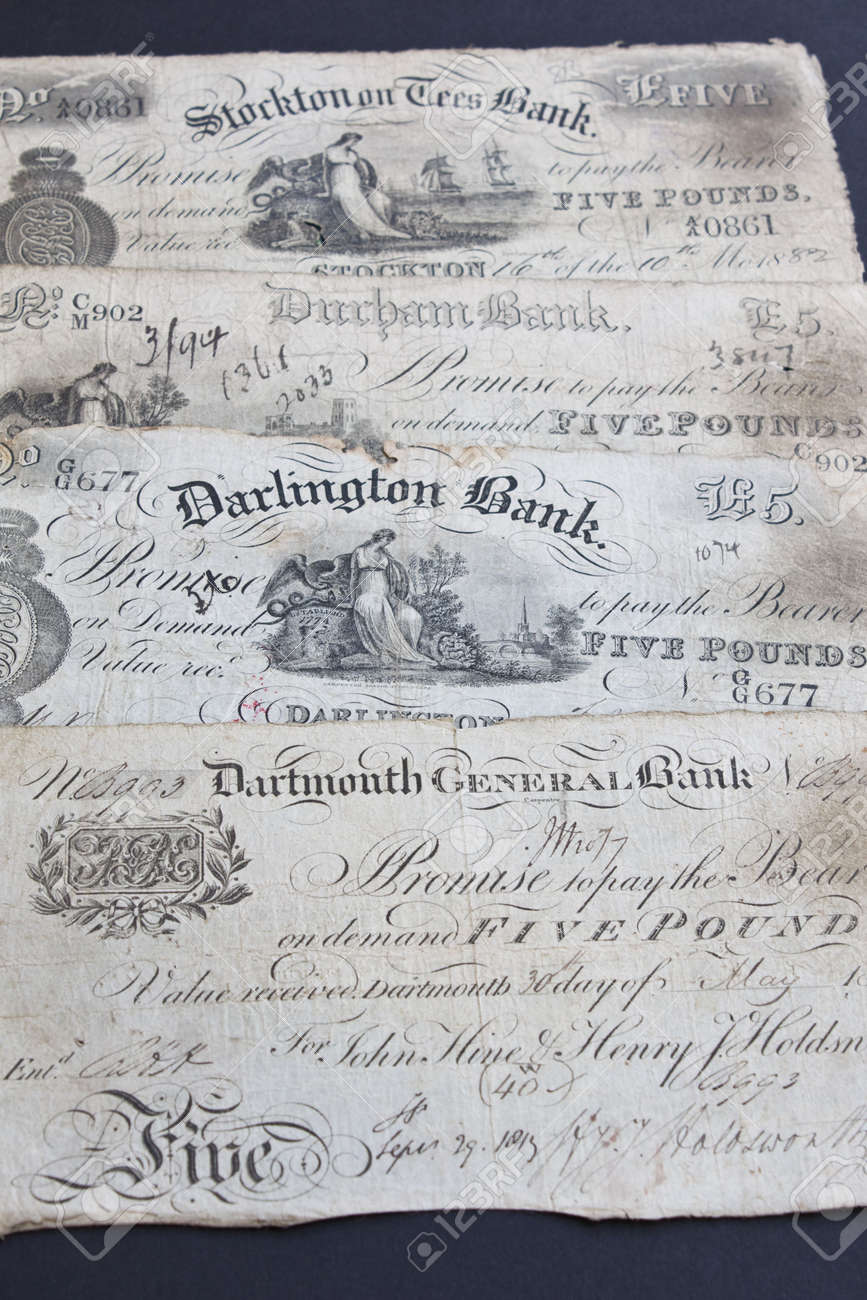 No. A/A 0861 Stockton on Tees Bank. £ FIVE
I Promise to pay the Bearer
on demand FIVE POUNDS,
Value rec
N A/A 0861
STOCKTON 16th of the 10th Mo. 1882
No. C/M 902 Durham Bank. £5.
3/94
1361
2033
3847
I Promise to pay the Beare
on demand FIVE POUNDS
C 902
No G/G 677 Darlington Bank. £5.
1074
I Promise to pay the Bearer
on Demand FIVE POUNDS
Value rec.d
ESTABLISHD
1774
N. G/G 677
DARLINGTON
No B993 Dartmouth GENERAL Bank N B9
Carpenter
I Promise to pay the Bear
on demand FIVE POUND
Value received. Dartmouth 30th day of May 18
For John Hine & Henry J. Holdsw
Ent.d
(40)
B993
£ Five
Sepr 29. 1815 Holdsworth
123RF